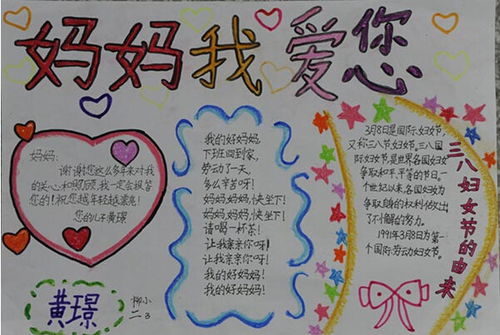 妈妈我爱您
妈妈:
谢谢您这么多年来对我
的关心和照顾,我一定会报答
您的!祝您越年轻越漂亮!
您的儿子黄璟
黄璟
柳小
二3
我的好妈妈,
下班回到家,
劳动了一天,
多么辛苦呀!
妈妈妈妈,快坐下!
妈妈,妈妈,快坐下!
请喝一杯茶!
让我亲亲你呀!
让我亲亲你呀!
我的好妈妈!
我的好妈妈!
3月8日是国际妇女节,
又称三八节妇女节,三八国
际妇女节,是世界各国妇女
争取和平、平等的节日,一
个世纪以来,各国妇女为
争取的权利作出
了不懈的努力。
1991年3月8日为第一
个国际劳动妇女节。
三八妇女节的由来